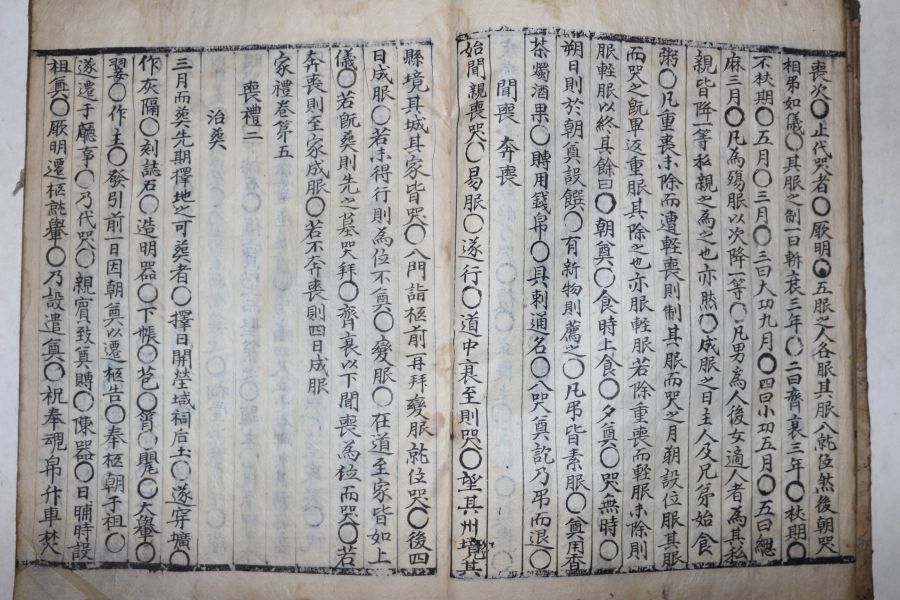 喪次〇止代哭者〇厥明〇五服之人各服其服入就位然後朝哭
相弔如儀〇其服之制一曰斬衰三年〇二曰齊衰三年〇杖期〇
不杖期〇五月〇三月〇三曰大功九月〇四曰小功五月〇五曰緦
麻三月〇凡為殤服以次降一等〇凡男為人後女適人者為其私
親皆降一等私親之為之也亦然〇成服之日主人及兄弟始食
粥〇凡重喪未除而遭軽喪則制其服而哭之月朔設位服其服
而哭之既畢返重服其除之也亦服軽服若除重喪而軽服未除則
服軽服以終其餘日〇朝奠〇食時上食〇夕奠〇哭無時〇
朔日則於朝奠設饌〇有新物則薦之〇凡弔皆素服〇奠用香
茶燭酒果〇賻用錢帛〇具刺通名〇入哭奠訖乃弔而退〇
聞喪 奔喪
始聞親喪哭〇易服〇遂行〇道中哀至則哭〇望其州境其
縣境其城其家皆哭〇入門詣柩前再拜變服就位哭〇後四
日成服〇若未得行則為位不奠〇變服〇在道至家皆如上
儀〇若既葬則先之墓哭拜〇齊衰以下聞喪為位而哭〇若
奔喪則至家成服〇若不奔喪則四日成服
家禮卷第五
喪禮二
治葬
三月而葬先期擇地之可葬者〇擇日開塋域祠后土〇遂穿壙〇
作灰隔〇刻誌石〇造明器〇下帳〇苞〇筲〇甖〇大轝〇
翣〇作主〇發引前一日因朝奠以遷柩告〇奉柩朝于祖〇
遂遷于廳事〇乃代哭〇親賓致奠賻〇陳器〇日晡時設
祖奠〇厥明遷柩就轝〇乃設遣奠〇祝奉魂帛升車焚